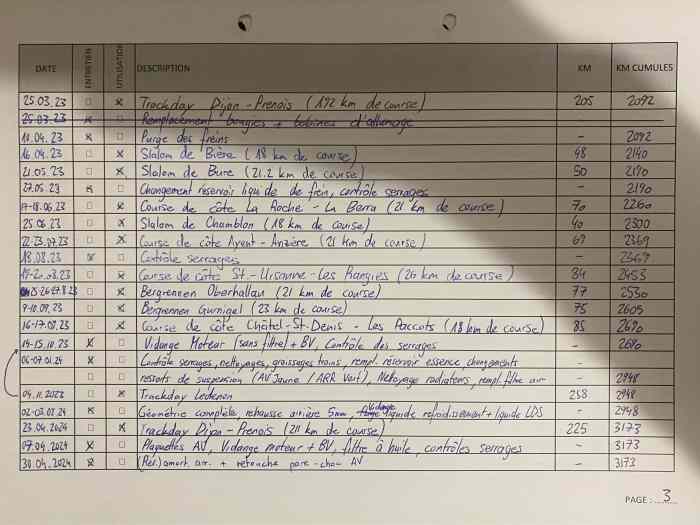 DATE ENTRETIEN UTILISATION DESCRIPTION KM KM CUMULES
25.03.23 x Trackday Dijon-Prenois (192 km de course) 205 2092
25.03.23 x Remplacement bougies + bobines d'allumage
10.04.23 x Purge des freins - 2092
16.04.23 x Slalom de Bière (18 km de course) 48 2140
21.05.23 x Slalom de Bure (21.2 km de course) 50 2190
27.05.23 x Changement réservoir liquide de frein, contrôle serrages - 2190
17-18.06.23 x Course de côte La Roche - La Berra (21 km de course) 70 2260
25.06.23 x Slalom de Chamblon (18 km de course) 40 2300
22-23.07.23 x Course de côte Ayent-Anzère (21 km de course) 69 2369
13.08.23 x Contrôle serrages - 2369
.08.23 x Course de côtes St-Ursanne-Les Rangiers (26 km de course) 84 2453
25-26-27.8.23 x Bergrennen Oberhallau (21 km de course) 77 2530
9-10.09.23 x Bergrennen Gurnigel (23 km de course) 75 2605
16-17.09.23 x Course de côte Châtel-St-Denis - Les Paccots (18 km de course) 85 2690
14-15.10.23 x Vidange Moteur (sans filtre) + BV, Contrôle des serrages - 2690
06-07.01.24 x Contrôle serrages, nettoyages, graissages trains, rempl. réservoir essence, changements
ressorts de suspension (AV Jaune / ARR Vert), Nettoyage radiateurs, rempl. filtre air - 2948
04.11.2023 x Trackday Ledenon 258 2948
02-03.03.24 x Géométrie complète, rehausse arrière 5mm, Vidange liquide refroidissement + liquide LDS - 2948
23.04.2024 x Trackday Dijon-Prenois (211 km de course) 225 3173
07.04.2024 x Plaquettes AV, Vidange moteur + BV, filtre à huile, contrôles serrages - 3173
30.04.2024 x amort. arr. + retouche pare-choc AV - 3173
PAGE : 3